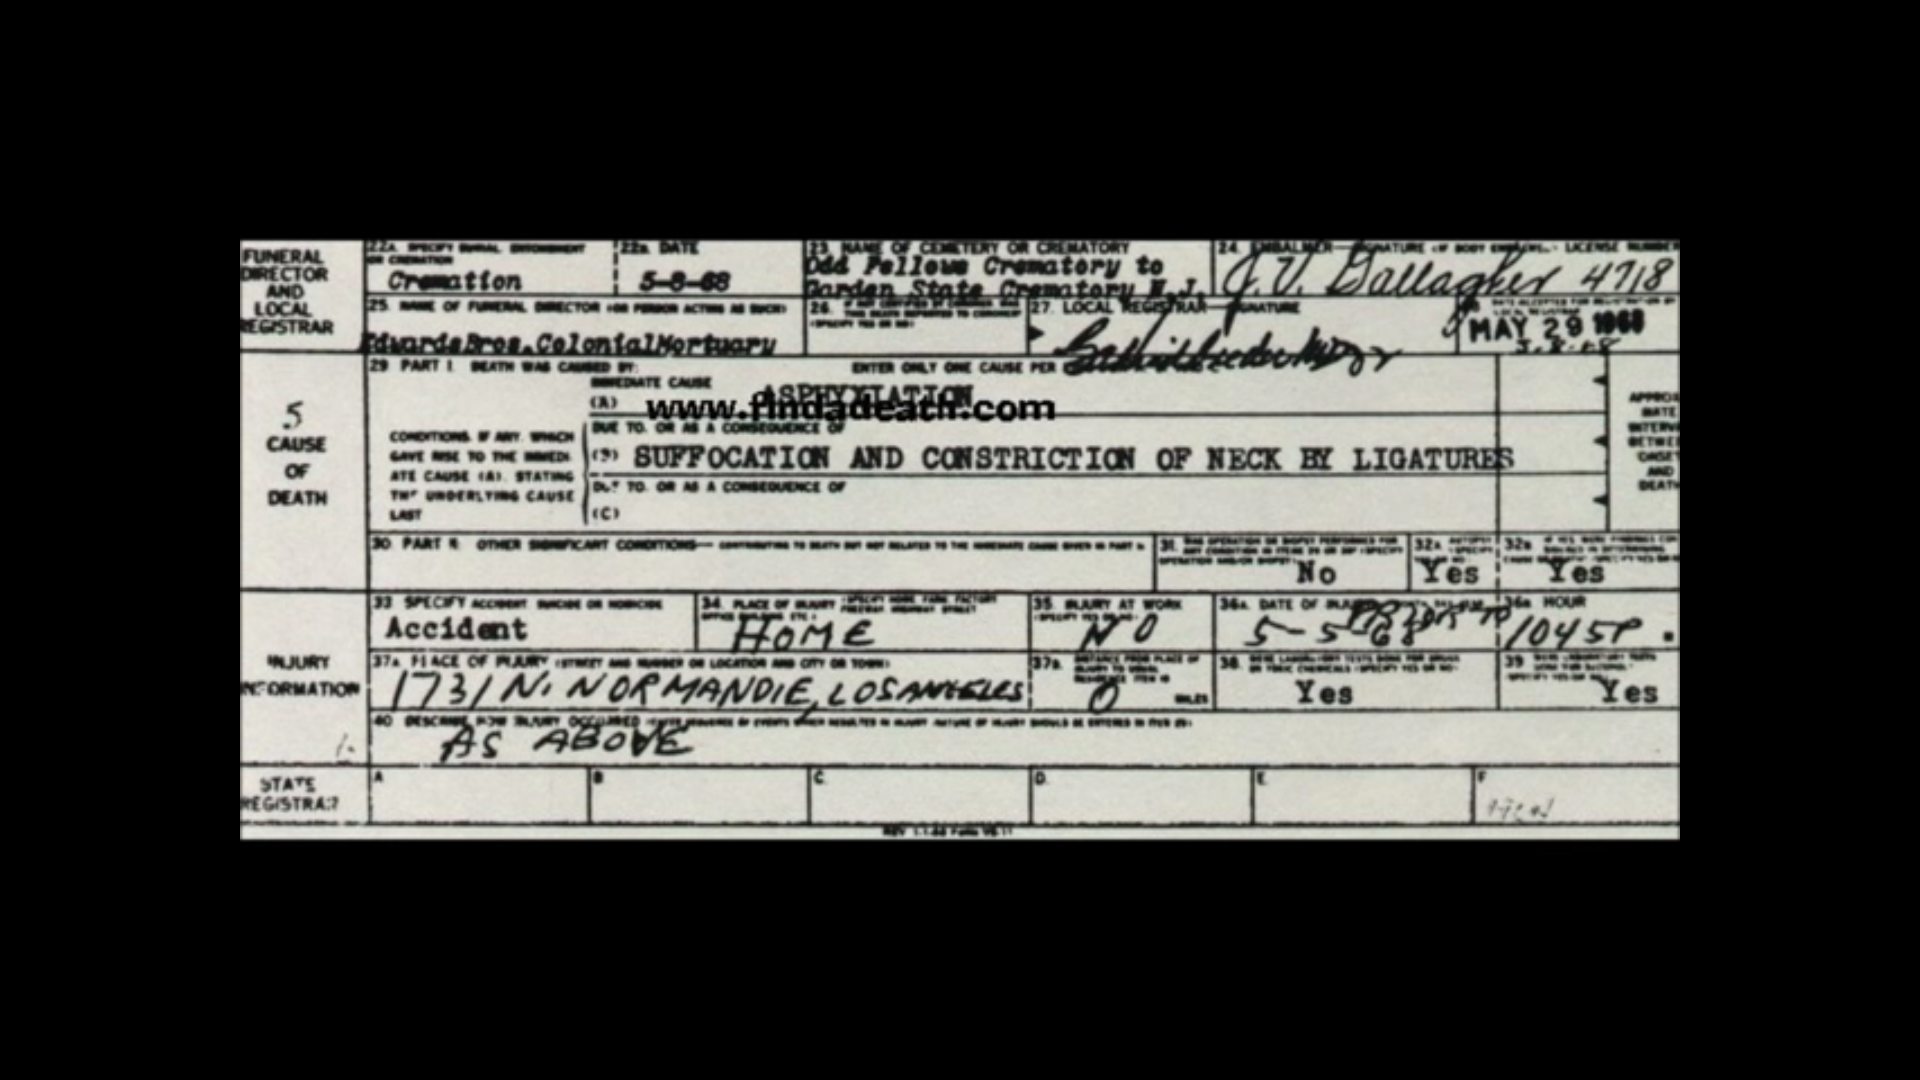 FUNERAL
DIRECTOR
AND
LOCAL
REGISTRAR
22A. SPECIFY BURIAL, ENTOMBMENT
OR CREMATION
Cremation
22B. DATE
5-8-68
23. NAME OF CEMETERY OR CREMATORY
Odd Fellows Crematory to
Garden State Crematory N.J.
24. EMBALMER—SIGNATURE (IF BODY EMBALMED) LICENSE NUMBER
J. V. Gallagher 4718
25. NAME OF FUNERAL DIRECTOR (OR PERSON ACTING AS SUCH)
Edwards Bros. Colonial Mortuary
26.
27. LOCAL REGISTRAR—SIGNATURE
MAY 29 1968
5
CAUSE
OF
DEATH
29. PART I. DEATH WAS CAUSED BY:
ENTER ONLY ONE CAUSE PER
IMMEDIATE CAUSE
(A) ASPHYXIATION
www.findadeath.com
CONDITIONS, IF ANY, WHICH
GAVE RISE TO THE IMMEDI-
ATE CAUSE (A), STATING
THE UNDERLYING CAUSE
LAST
DUE TO, OR AS A CONSEQUENCE OF
(B) SUFFOCATION AND CONSTRICTION OF NECK BY LIGATURES
DUE TO, OR AS A CONSEQUENCE OF
(C)
APPROXI
MATE
INTERVAL
BETWEEN
ONSET
AND
DEATH
30. PART II. OTHER SIGNIFICANT CONDITIONS—CONTRIBUTING TO DEATH BUT NOT RELATED TO THE IMMEDIATE CAUSE GIVEN IN PART I.
31.
No
32A.
Yes
32B.
Yes
INJURY
INFORMATION
33. SPECIFY ACCIDENT, SUICIDE OR HOMICIDE
Accident
34. PLACE OF INJURY
HOME
35. INJURY AT WORK
(SPECIFY YES OR NO)
NO
36A. DATE OF INJURY
PRIOR TO
5-5-68
36B. HOUR
1045P.
37A. PLACE OF INJURY (STREET AND NUMBER OR LOCATION AND CITY OR TOWN)
1731 N. NORMANDIE, LOS ANGELES
37B. DISTANCE FROM PLACE OF
INJURY TO USUAL
RESIDENCE
0 MILES
38. WERE LABORATORY TESTS DONE FOR DRUGS
OR TOXIC CHEMICALS (SPECIFY YES OR NO)
Yes
39.
Yes
40. DESCRIBE HOW INJURY OCCURRED
AS ABOVE
STATE
REGISTRAR
A.
B.
C.
D.
E.
F.